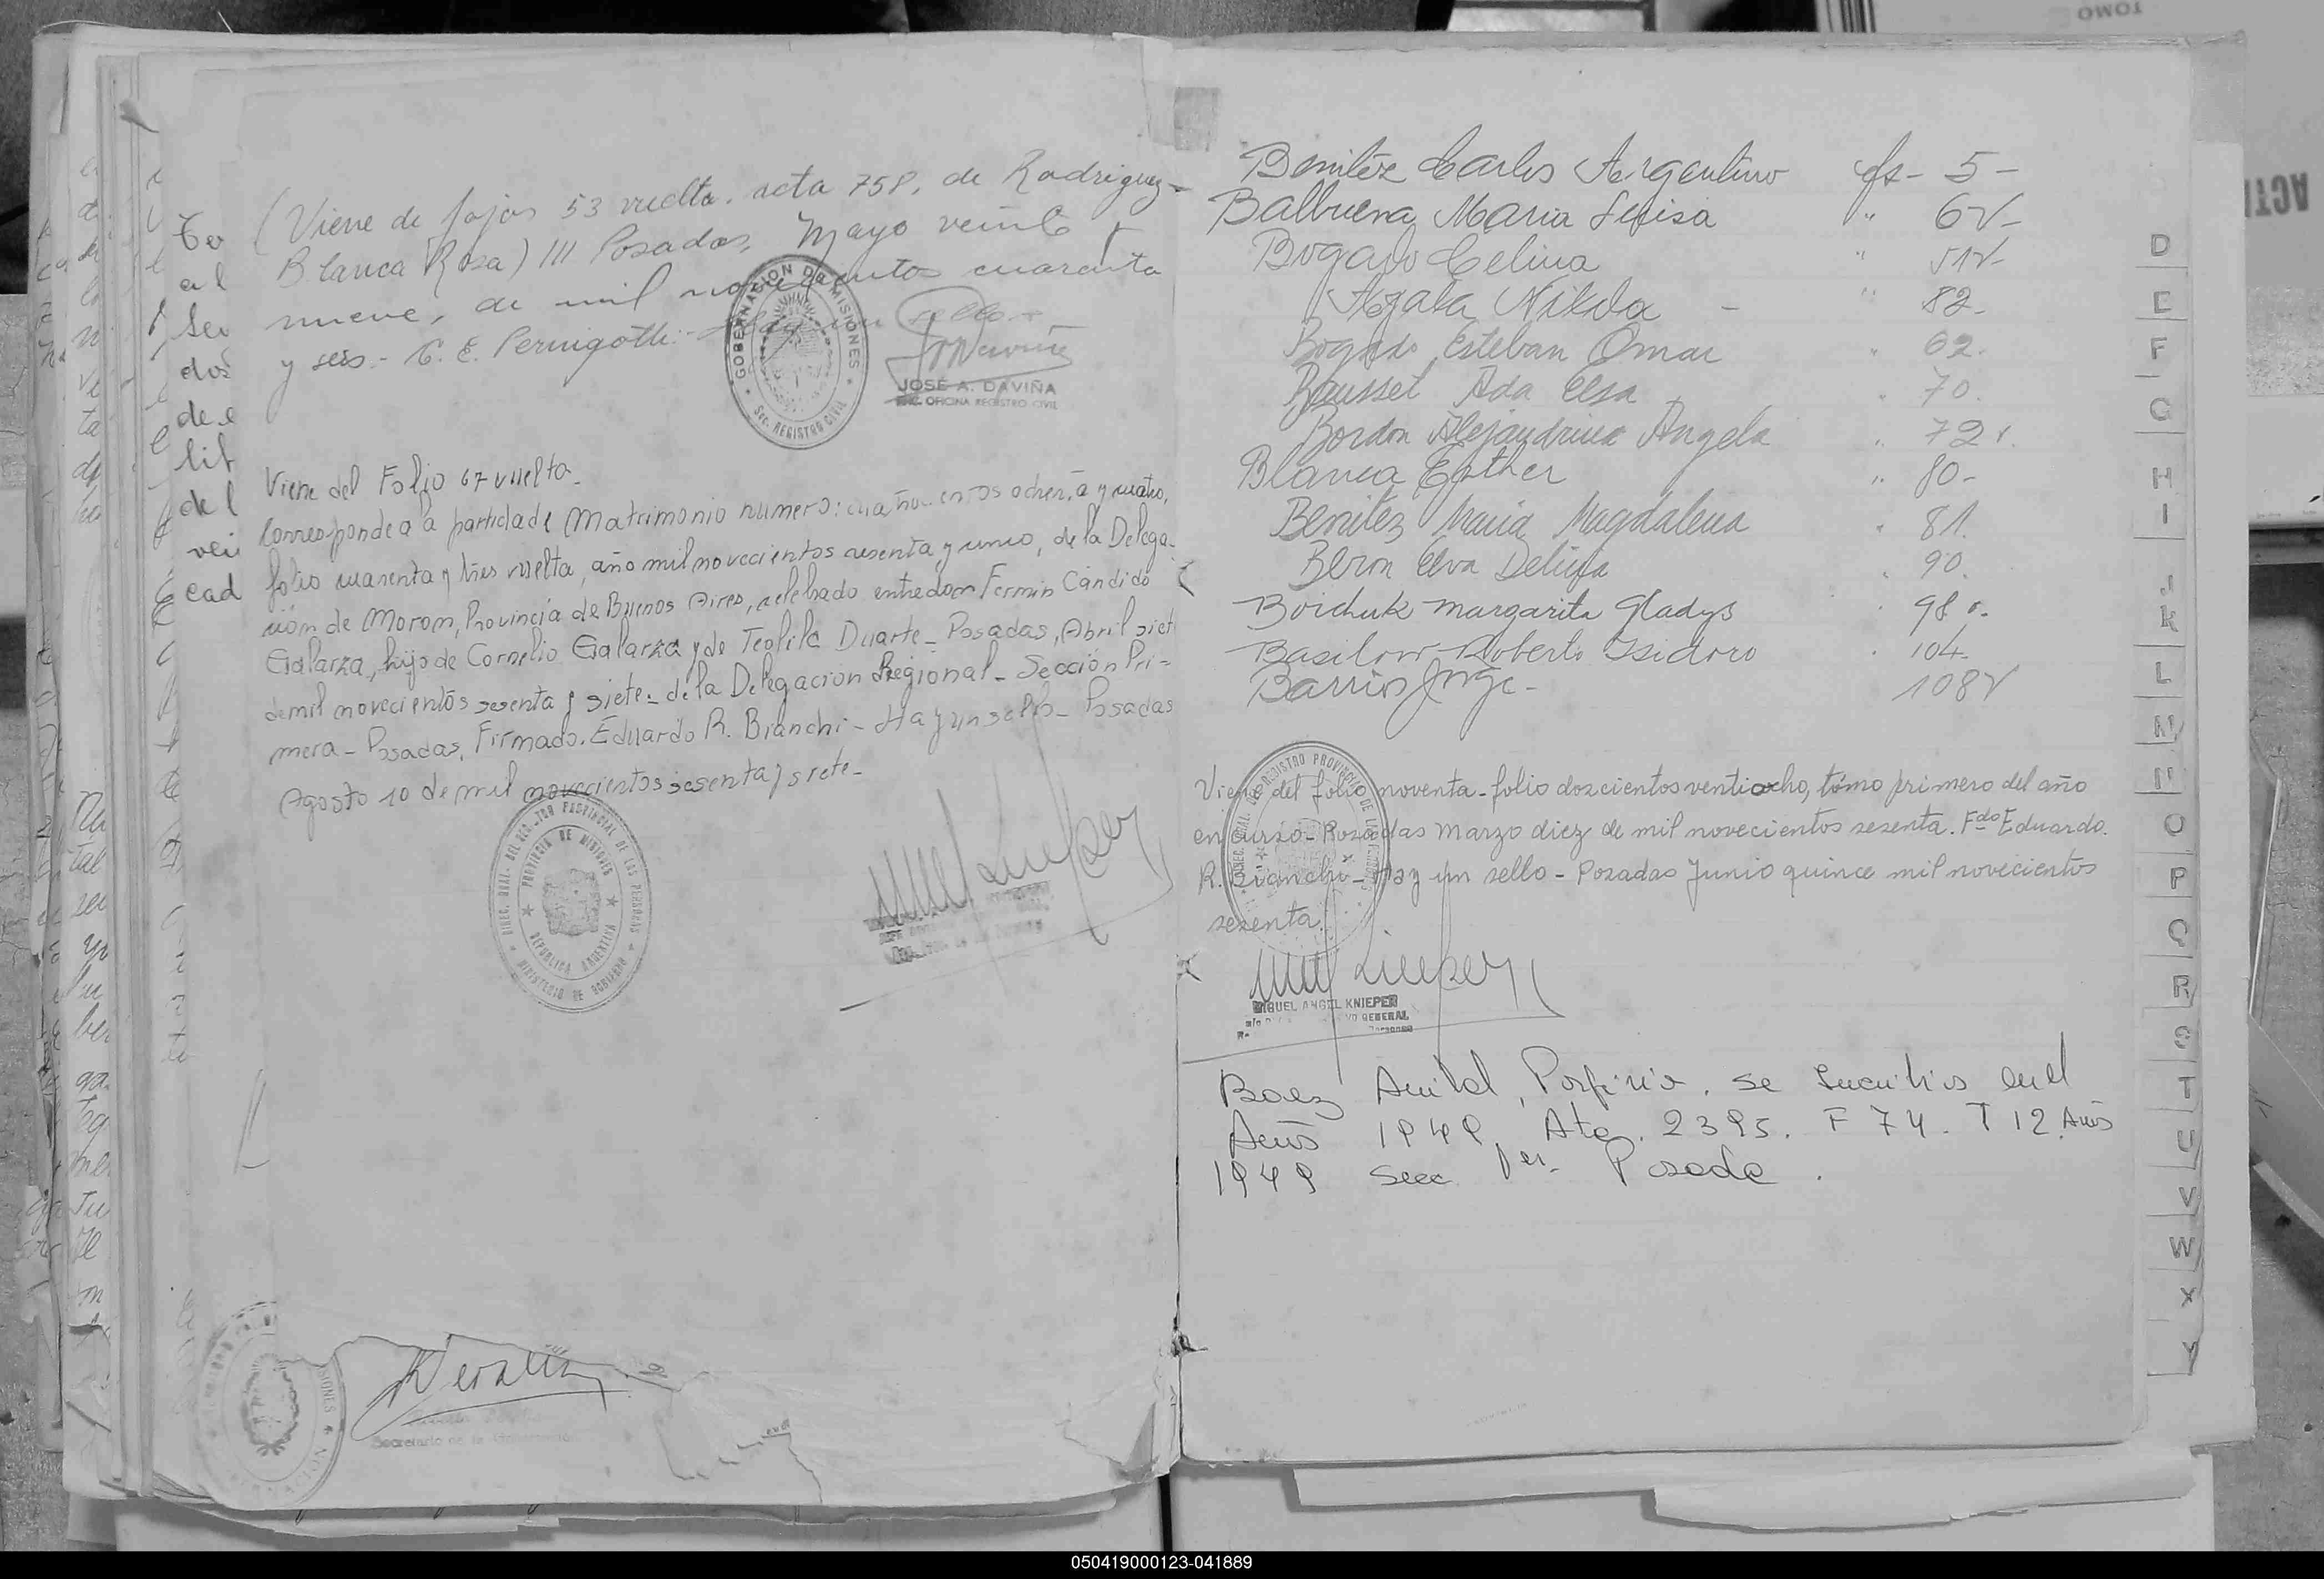 (Viene de fojas 53 vuelta. acta 758, de Rodriguez
Blanca Rosa) /// Posadas, Mayo veinti
nueve, de mil novecientos cuarenta
y seis.- C. E. Pernigotti.- Hay un sello.-
GOBERNACION DE MISIONES
Sec. REGISTRO CIVIL
JOSÉ A. DAVIÑA
ENC. OFICINA REGISTRO CIVIL
Viene del Folio 67 vuelta-
Corresponde a la partida de Matrimonio numero: cuatrocientos ochenta y cuatro,
folio cuarenta y tres vuelta, año mil novecientos sesenta y uno, de la Delega-
ción de Moron, Provincia de Buenos Aires, celebrado entre don Fermin Cándido
Galarza, hijo de Cornelio Galarza y de Teofila Duarte- Posadas, Abril siete
de mil novecientos sesenta y siete- de la Delegación Regional- Sección Pri-
mera- Posadas, Firmado. Eduardo R. Bianchi- Hay un sello- Posadas
Agosto 10 de mil novecientos sesenta y siete-
DIREC. GRAL. DEL REGISTRO PROVINCIAL DE LAS PERSONAS
PROVINCIA DE MISIONES
REPUBLICA ARGENTINA
MINISTERIO DE GOBIERNO
Secretario de la Gobernación
Benitez Carlos Argentino fs- 5-
Balbuena Maria Luisa " 6v-
Bogado Celina " 51v-
Agata Nilda - " 82-
Bogado Esteban Omar " 62.
Bausset Ada Elsa " 70.
Bordon Alejandrina Angela " 72v.
Blanca Esther " 80-
Benitez Maria Magdalena " 81.
Beron Elva Delina " 90.
Boichuk Margarita Gladys " 98v.
Basilow Roberto Isidoro " 104-
Barrios Jorge- 108v
Viene del folio noventa- folio doscientos ventiocho, tómo primero del año
en curso- Posadas marzo diez de mil novecientos sesenta. Fdo Eduardo.
R. Bianchi- Hay un sello- Posadas Junio quince mil novecientos
sesenta.
MIGUEL ANGEL KNIEPER
Baez Anibal, Porfirio. se encuentra en el
Año 1949, Ata. 2395. F 74. T 12. Año
1949 Secc. 1er. Posada.
D
E
F
G
H
I
J
K
L
M
N
O
P
Q
R
S
T
U
V
W
X
Y
TOMO
050419000123-041889